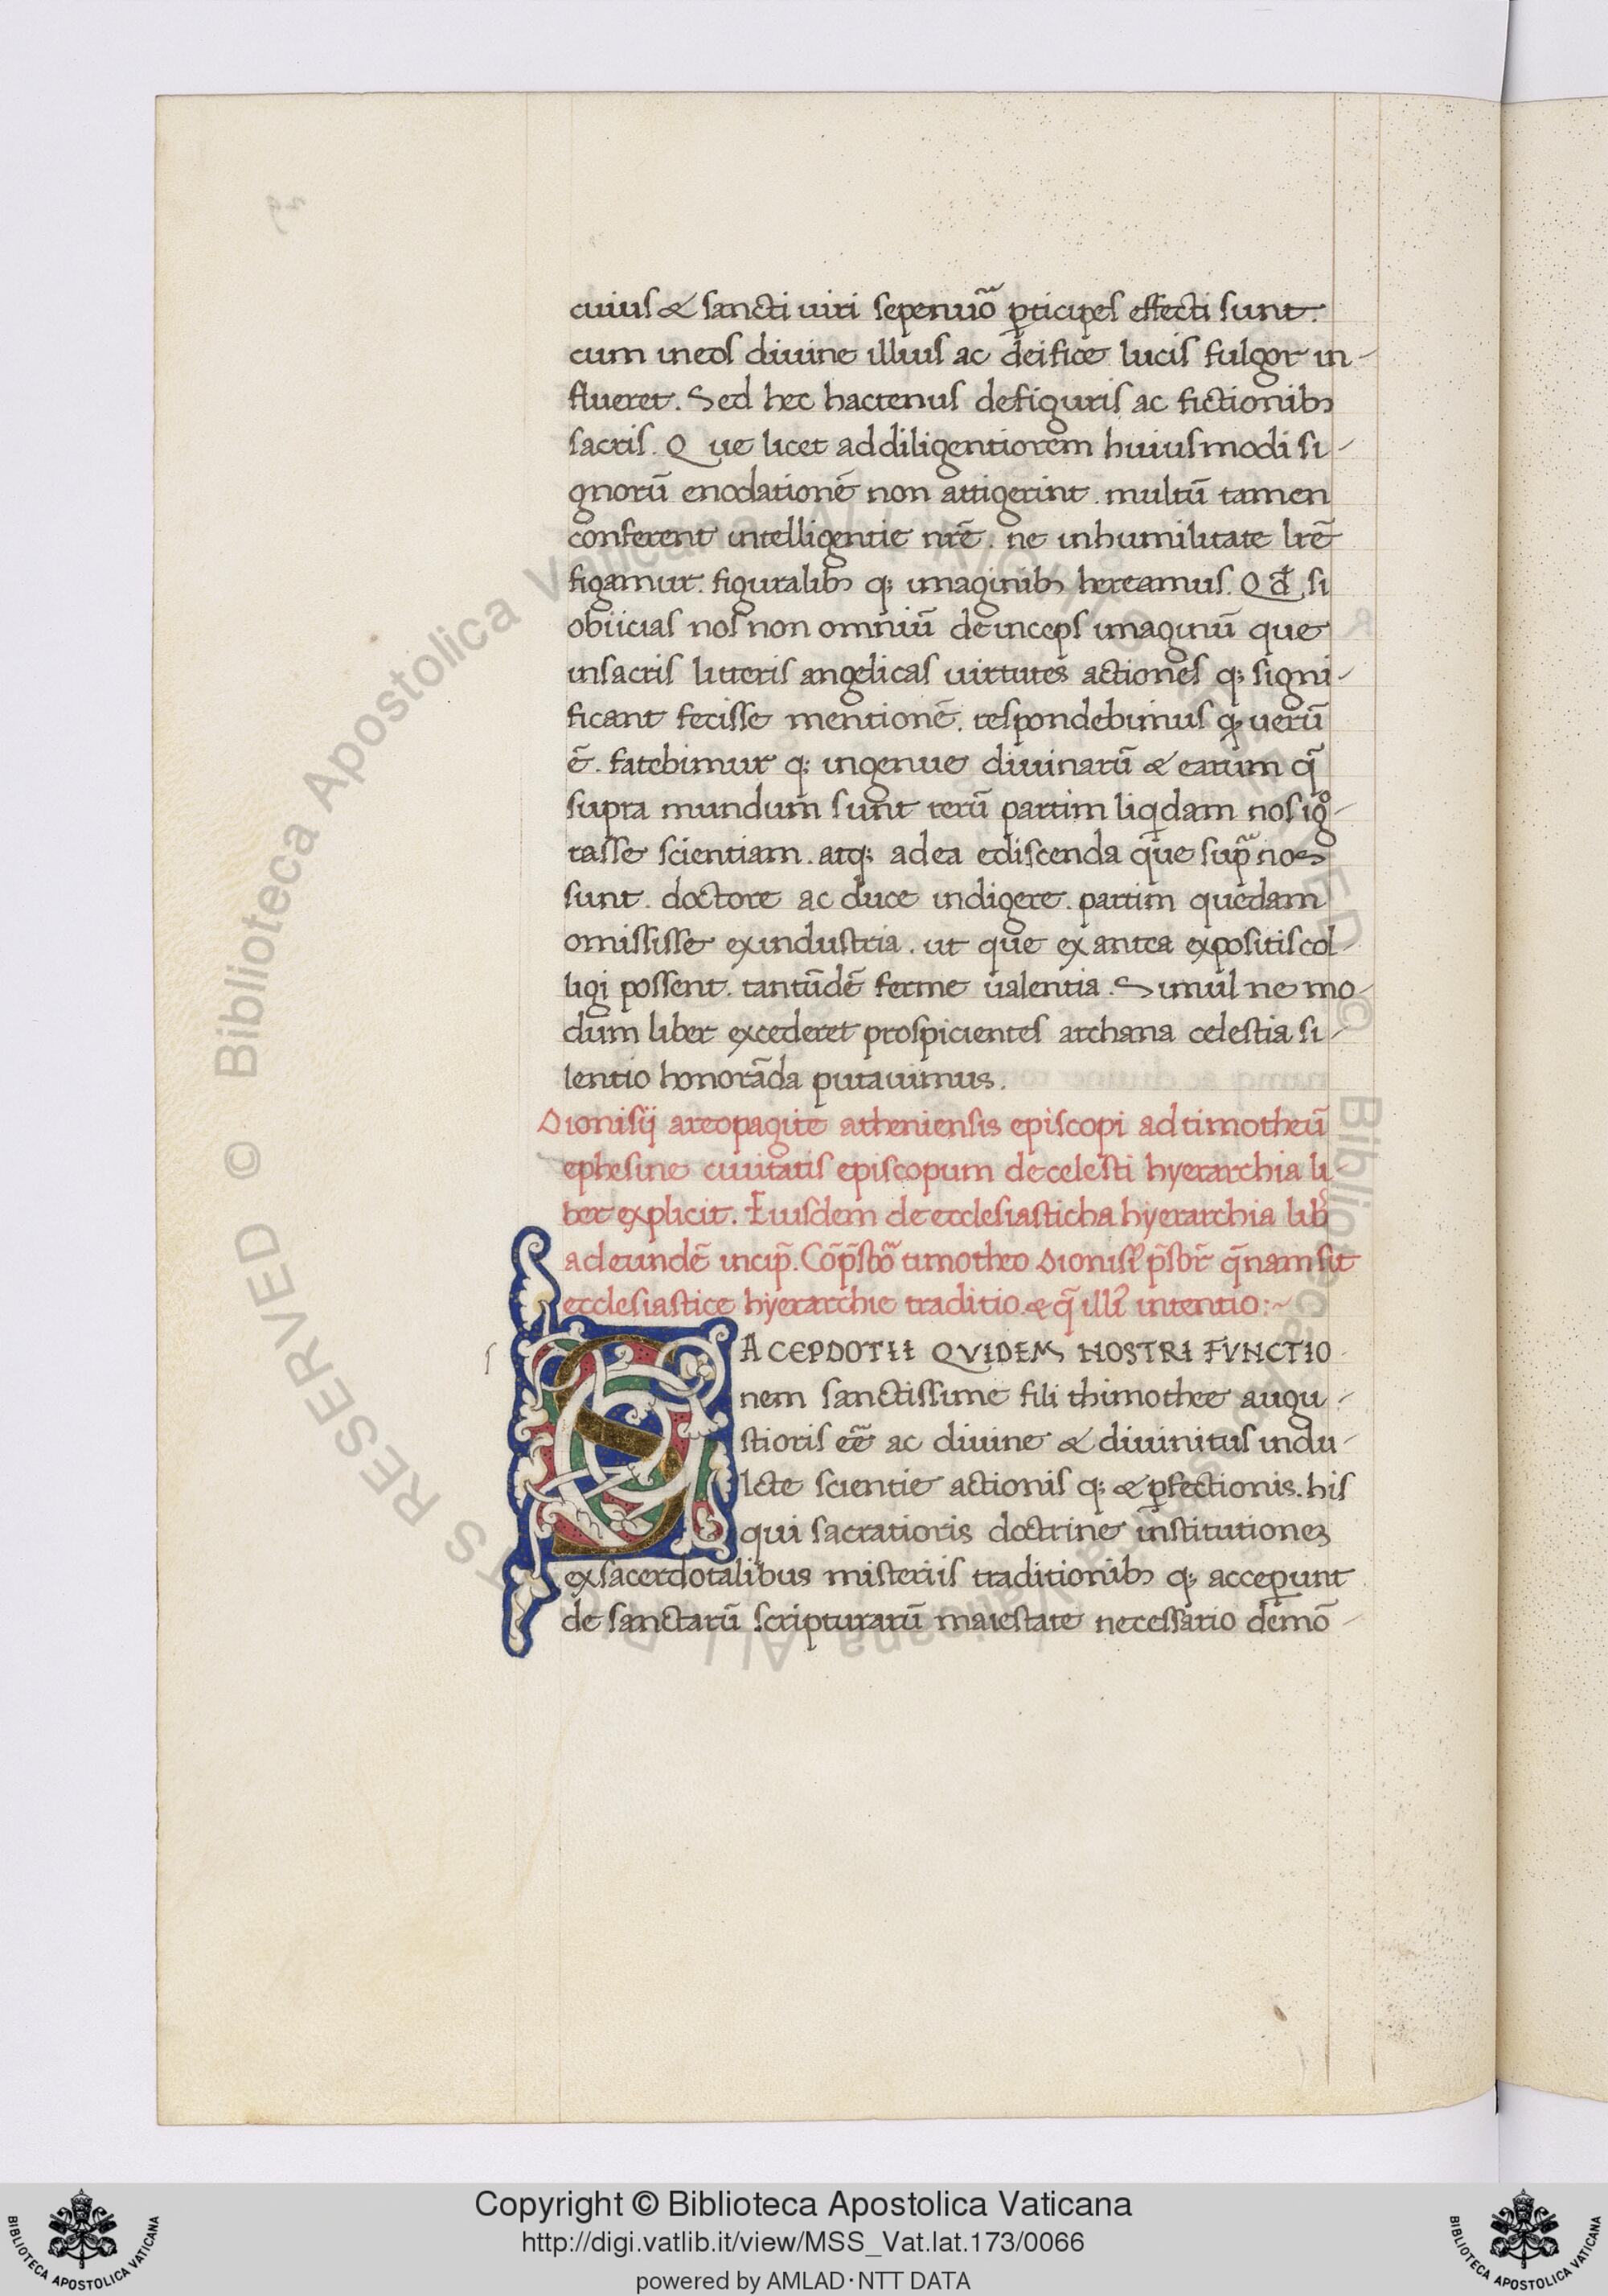 cuius & sancti uiri sepenuō ꝑticipes effecti sunt.
cum in eos diuine illius ac deifice lucis fulgor in-
flueret. Sed hec hactenus de figuris ac fictionibꝫ
sacris. Que licet ad diligentiorem huiusmodi si-
gnorū enodationē non attigerint. multū tamen
conferent intelligentie nrē. ne in humilitate lrē
figamur. figuralibꝫ qꝫ imaginibꝫ hereamus. Qđ si
obiicias nos non omniū deinceps imaginū que
in sacris litteris angelicas uirtutes actiones qꝫ signi-
ficant fecisse mentionē. respondebimus qꝫ uerū
ē. fatebimur qꝫ ingenue diuinarū & earum q̄
supra mundum sunt rerū partim liqdam nos ig̊-
rasse scientiam. atqꝫ ad ea ediscenda que sup̄ nos
sunt. doctore ac duce indigere. partim quedam
omisisse ex industria. ut que ex antea expositis col-
ligi possent. tantūdē ferme ualentia. Simul ne mo-
dum liber excederet prospicientes archana celestia si-
lentio honorāda putauimus.
Dionisij areopagite atheniensis episcopi ad timotheū
ephesine ciuitatis episcopum de celesti hyerarchia li-
ber explicit. Eiusdem de ecclesiasticha hyerarchia lib̄
ad eundē incip̄. Cōp̄sbrō timotheo Dionisiꝰ p̄sbr̄ q̄nam sit
ecclesiastice hyerarchie traditio. & q̄ illiꝰ intentio:~
SACERDOTII QVIDEM NOSTRI FVNCTIO-
nem sanctissime fili thimothee augu-
stioris eē ac diuine & diuinitus indu-
lcte scientie actionis qꝫ & ꝑfectionis. his
qui sacratioris doctrine institutiones
ex sacerdotalibus misteriis traditionibꝫ qꝫ acceꝑunt
de sanctarū scripturarū maiestate necessario demō-
Copyright © Biblioteca Apostolica Vaticana
http://digi.vatlib.it/view/MSS_Vat.lat.173/0066
powered by AMLAD·NTT DATA
BIBLIOTECA APOSTOLICA VATICANA
BIBLIOTECA APOSTOLICA VATICANA